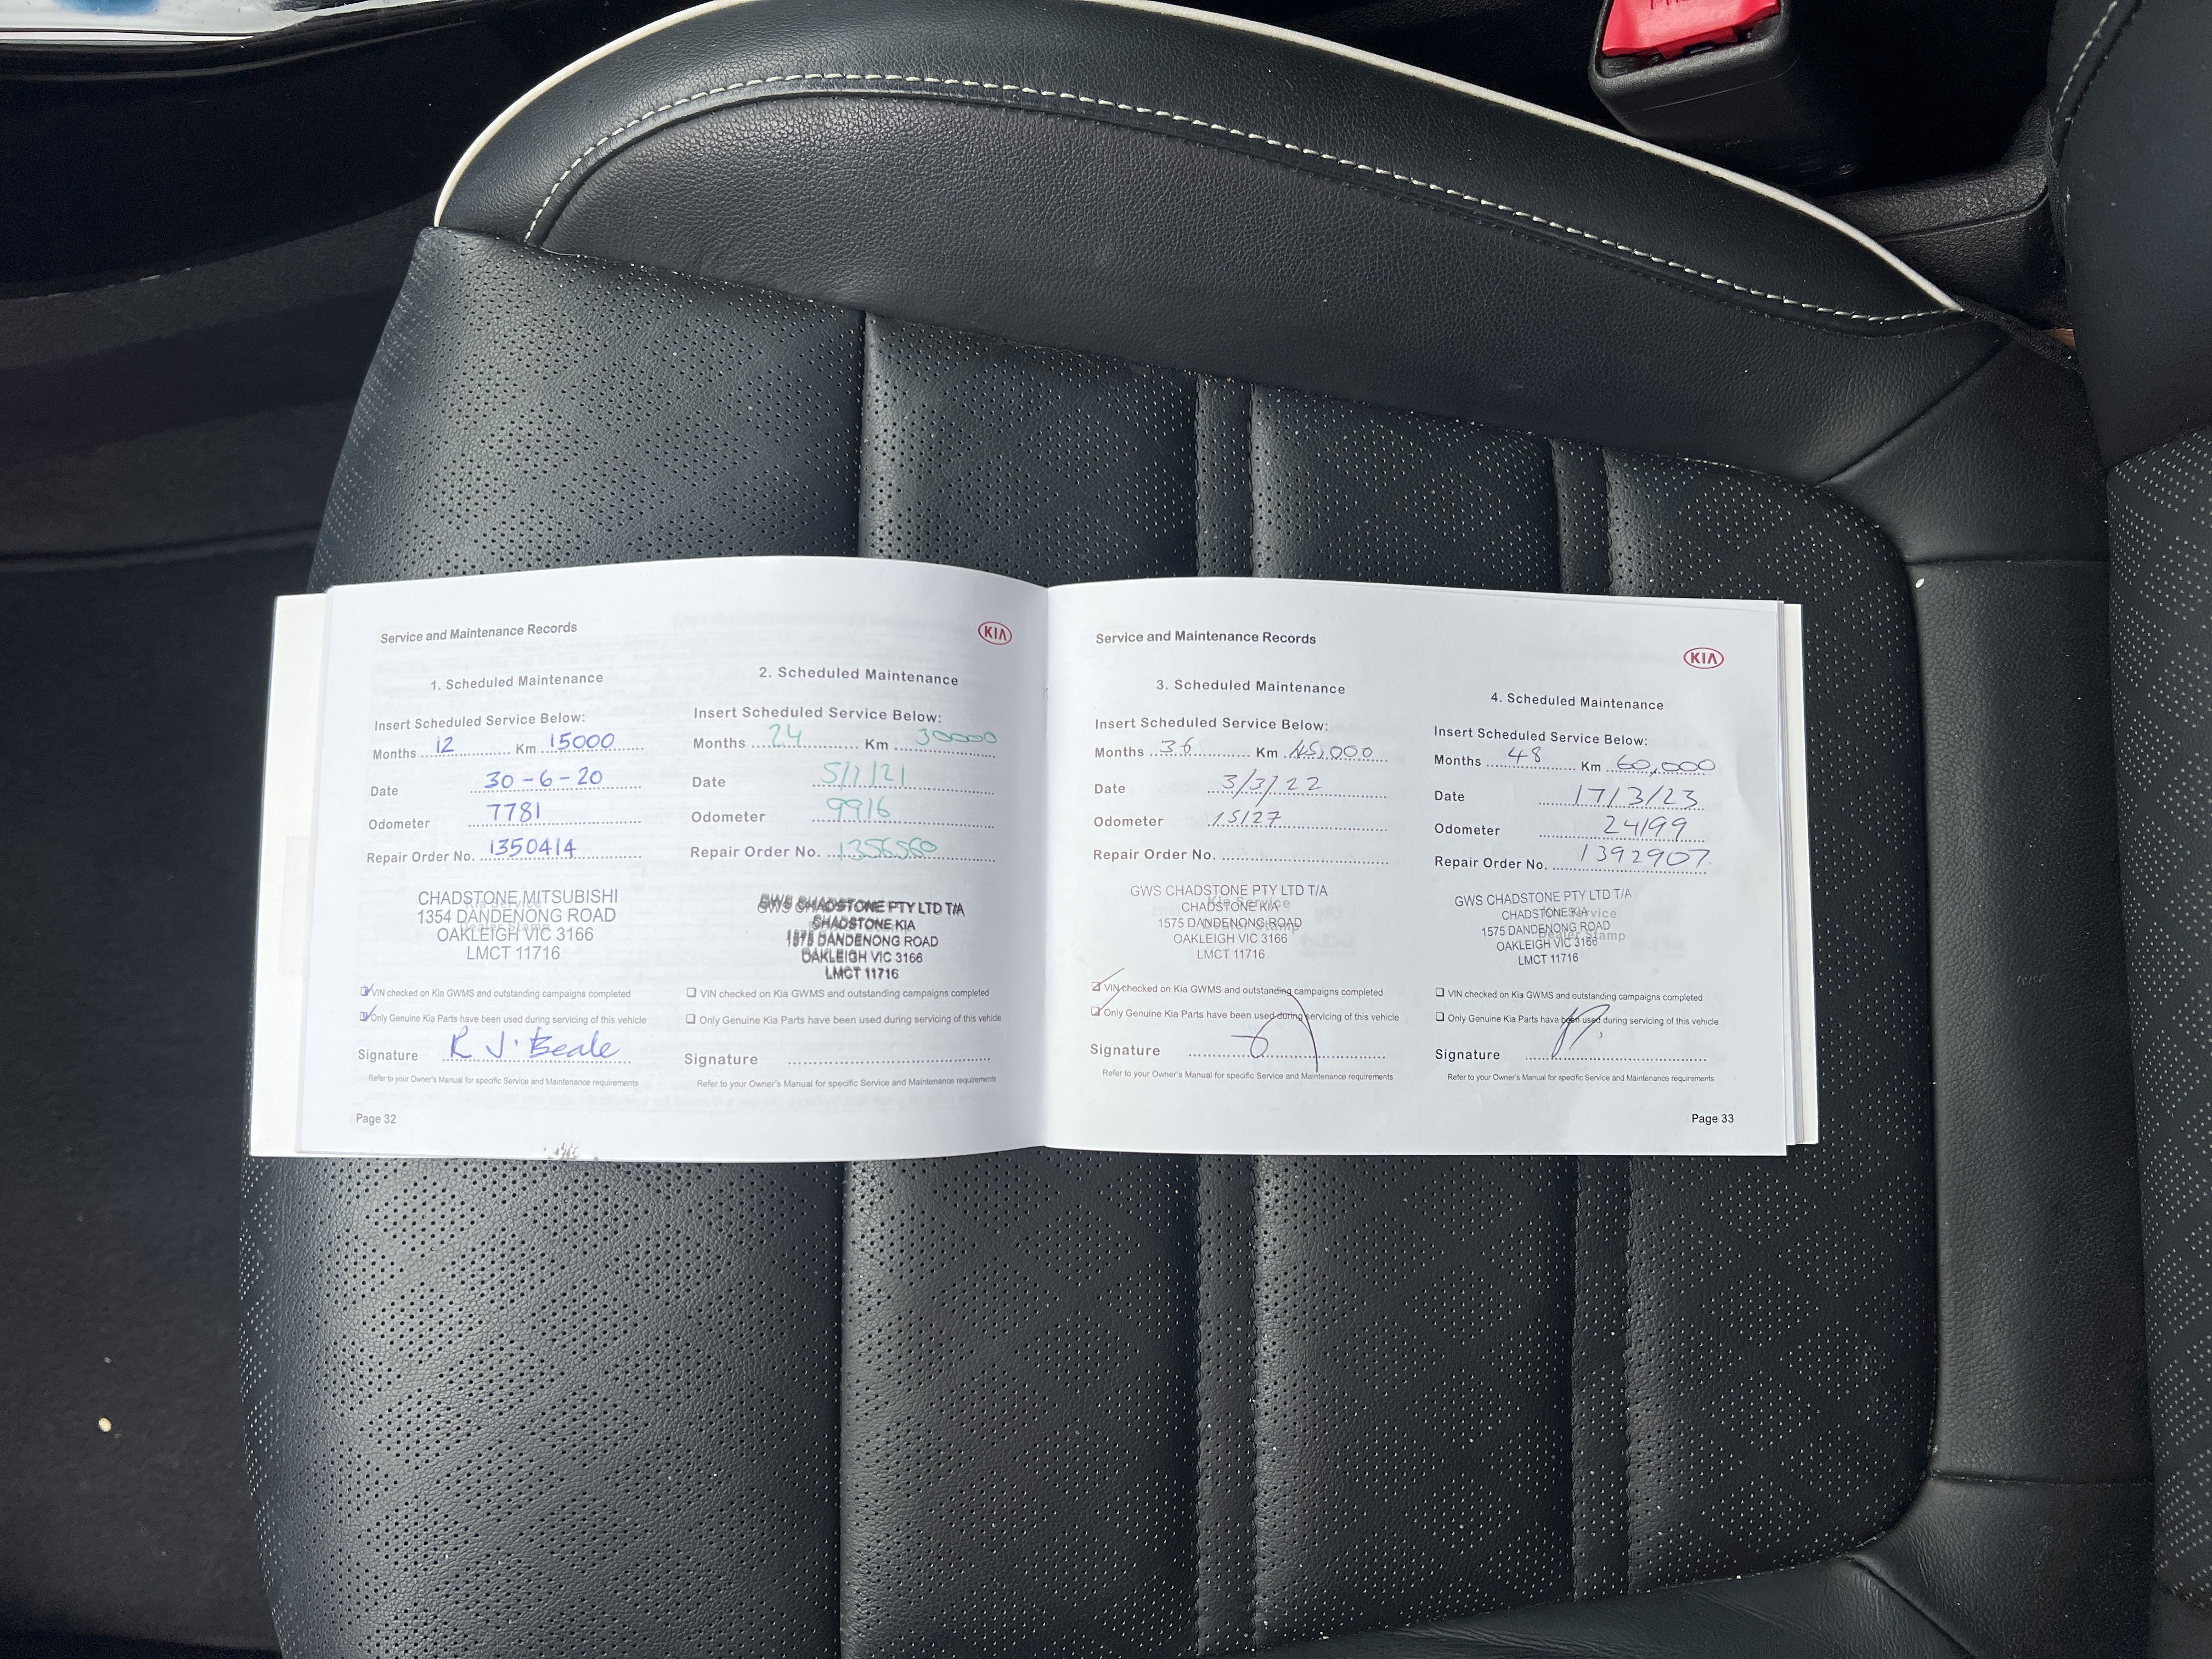 Service and Maintenance Records
KIA
1. Scheduled Maintenance
Insert Scheduled Service Below:
Months 12 Km 15000
Date 30-6-20
Odometer 7781
Repair Order No. 1350414
CHADSTONE MITSUBISHI
1354 DANDENONG ROAD
OAKLEIGH VIC 3166
LMCT 11716
VIN checked on Kia GWMS and outstanding campaigns completed
Only Genuine Kia Parts have been used during servicing of this vehicle
Signature R J. Beale
Refer to your Owner's Manual for specific Service and Maintenance requirements
Page 32
2. Scheduled Maintenance
Insert Scheduled Service Below:
Months 24 Km 30000
Date 5/1/21
Odometer 9916
Repair Order No. 1356560
GWS CHADSTONE PTY LTD T/A
CHADSTONE KIA
1575 DANDENONG ROAD
OAKLEIGH VIC 3166
LMCT 11716
VIN checked on Kia GWMS and outstanding campaigns completed
Only Genuine Kia Parts have been used during servicing of this vehicle
Signature
Refer to your Owner's Manual for specific Service and Maintenance requirements
Service and Maintenance Records
KIA
3. Scheduled Maintenance
Insert Scheduled Service Below:
Months 36 Km 45,000
Date 3/3/22
Odometer 15127
Repair Order No.
GWS CHADSTONE PTY LTD T/A
CHADSTONE KIA
1575 DANDENONG ROAD
OAKLEIGH VIC 3166
LMCT 11716
VIN checked on Kia GWMS and outstanding campaigns completed
Only Genuine Kia Parts have been used during servicing of this vehicle
Signature
Refer to your Owner's Manual for specific Service and Maintenance requirements
4. Scheduled Maintenance
Insert Scheduled Service Below:
Months 48 Km 60,000
Date 17/3/23
Odometer 24199
Repair Order No. 1392907
GWS CHADSTONE PTY LTD T/A
CHADSTONE KIA
1575 DANDENONG ROAD
OAKLEIGH VIC 3166
LMCT 11716
VIN checked on Kia GWMS and outstanding campaigns completed
Only Genuine Kia Parts have been used during servicing of this vehicle
Signature
Refer to your Owner's Manual for specific Service and Maintenance requirements
Page 33